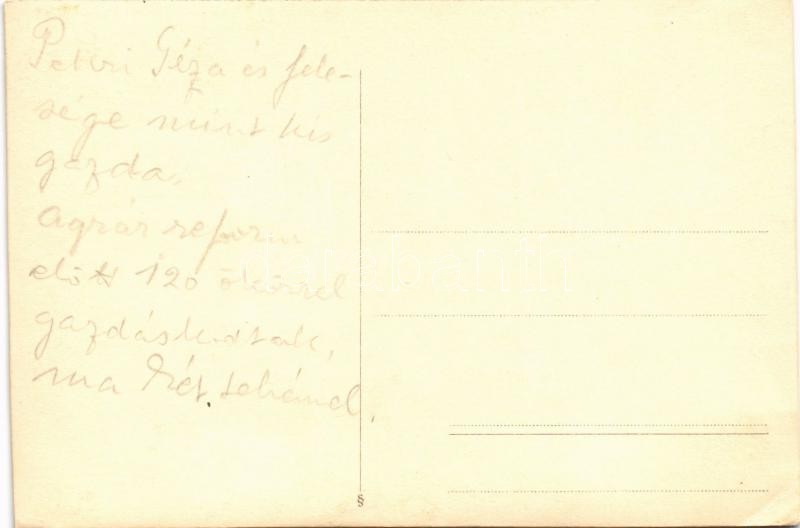 Petri Géza és fele-
sége mint kis
gazda.
Agrár reform
előtt 120 ökörrel
gazdáskodtak,
ma két tehénnel.
§